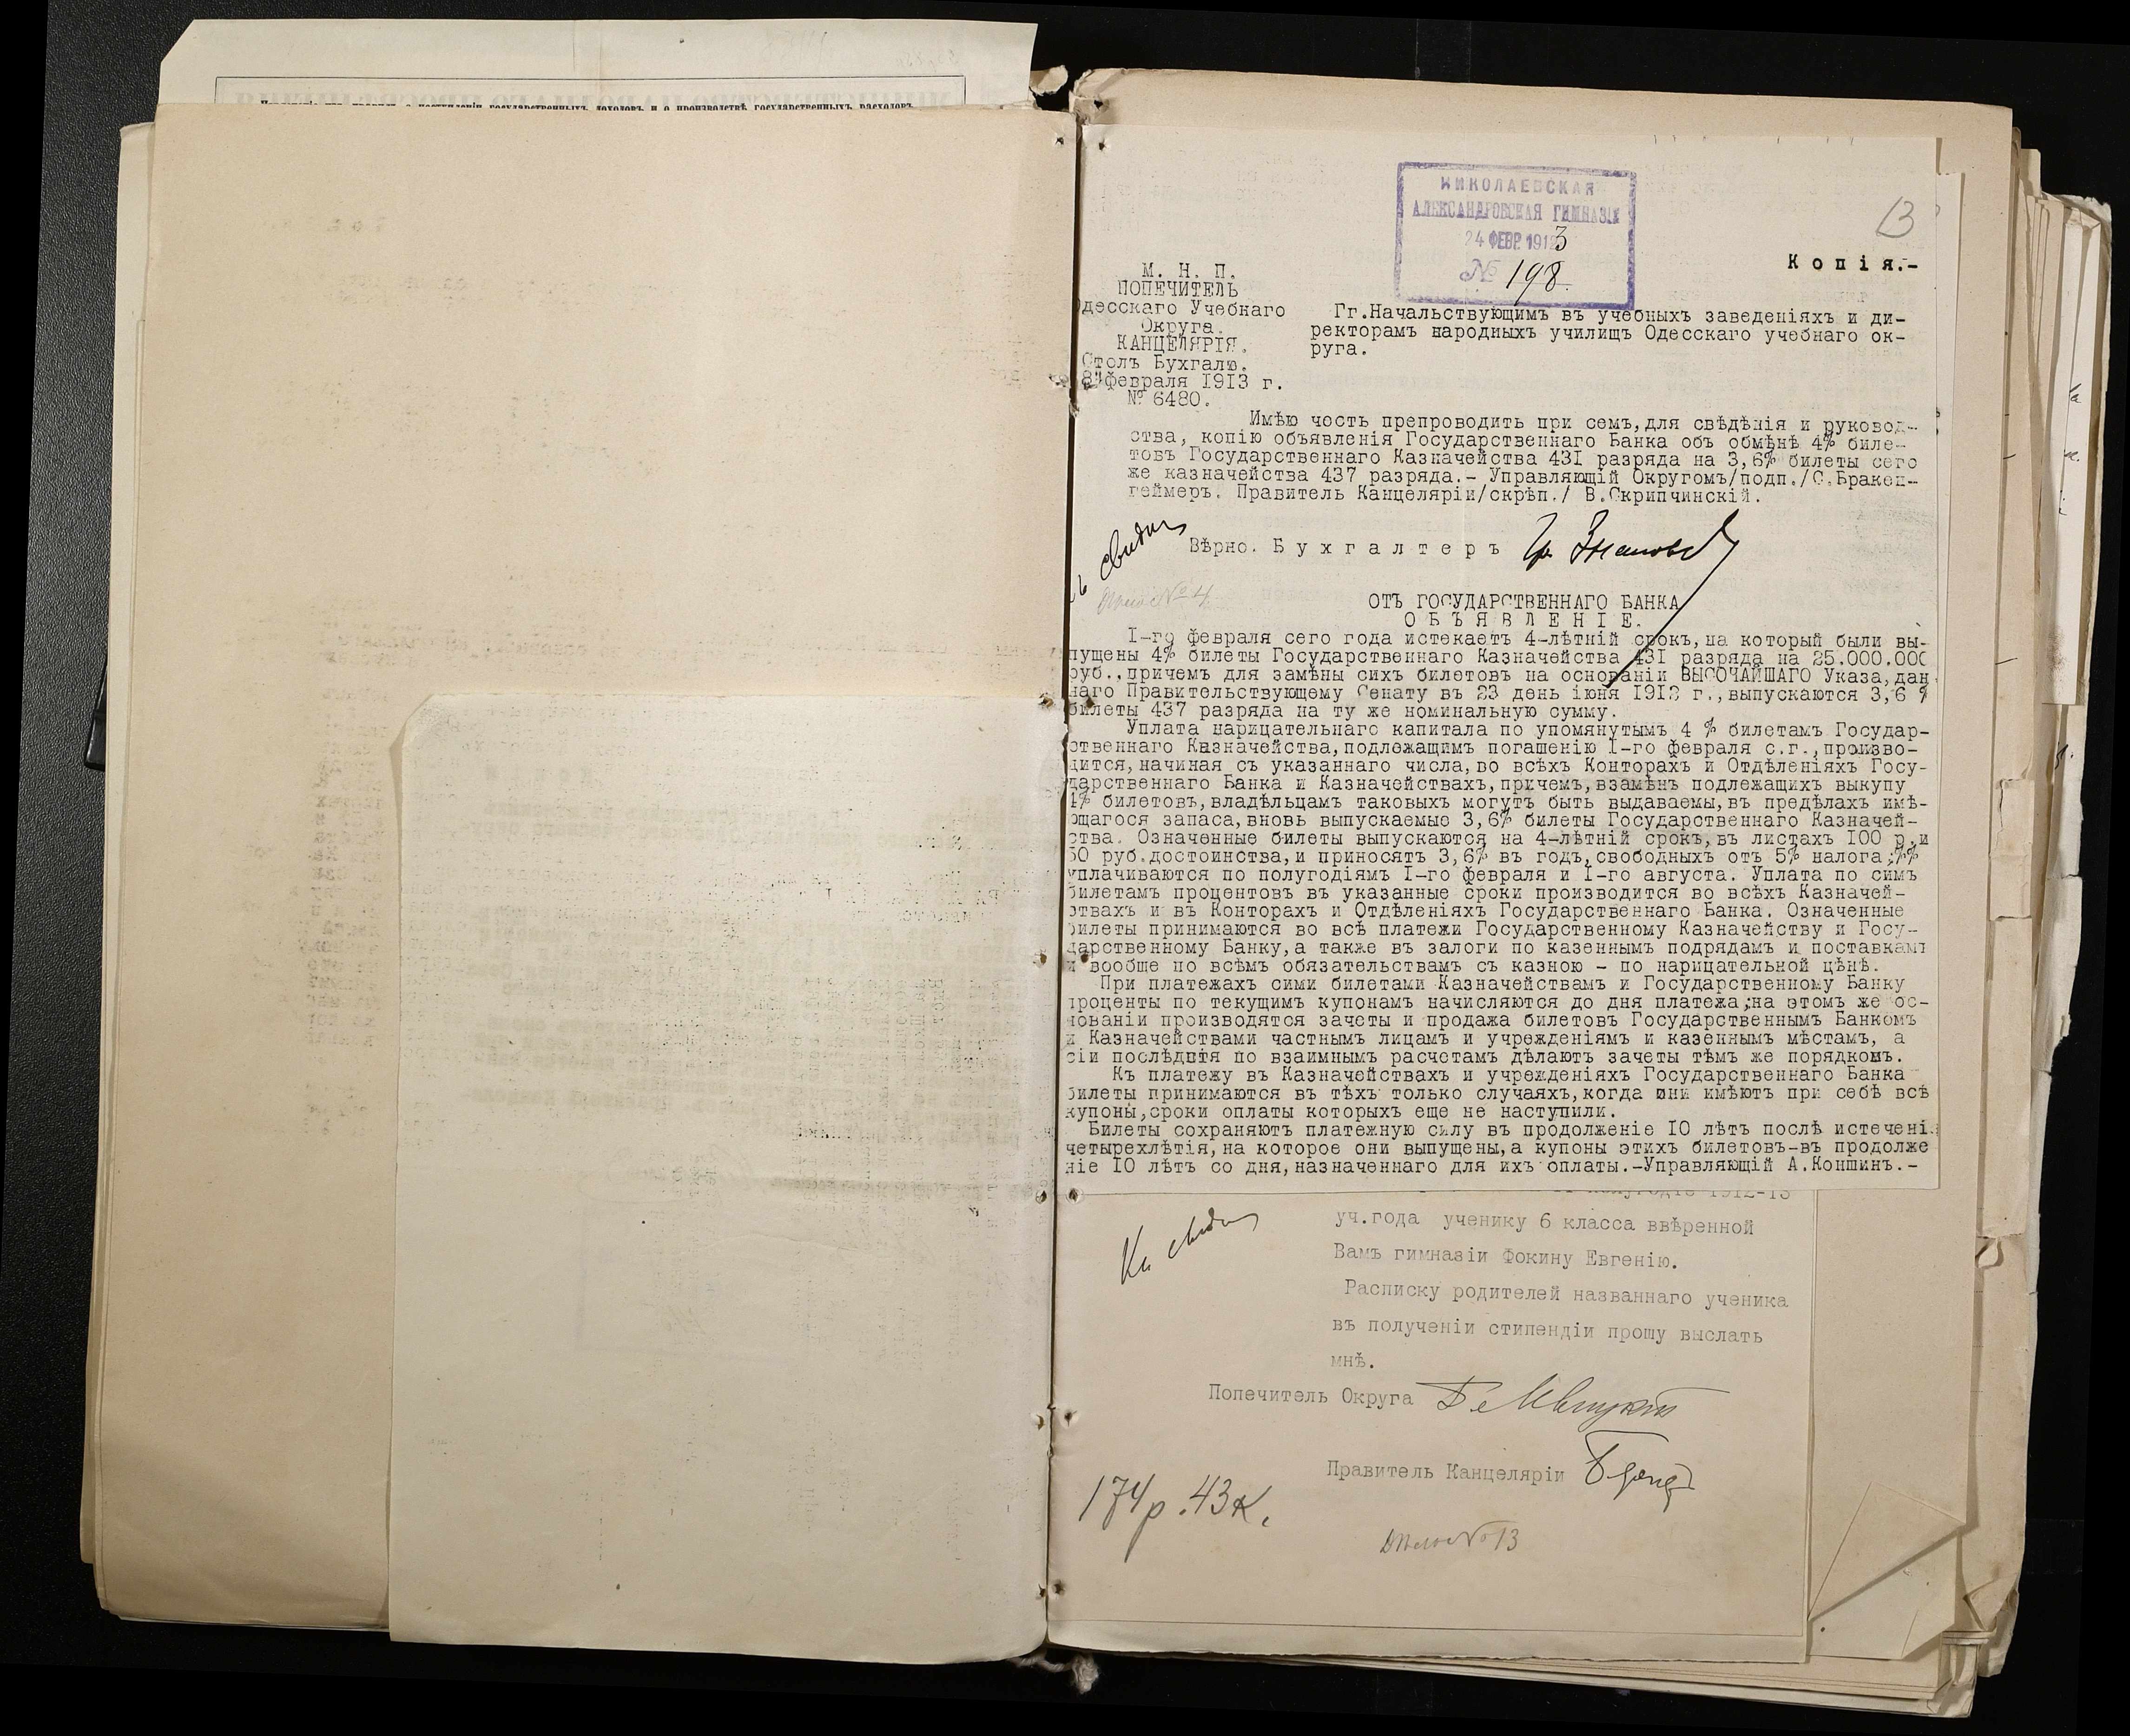 НИКОЛАЕВСКАЯ
АЛЕКСАНДРОВСКАЯ ГИМНАЗІЯ
24 ФЕВР. 1913
№ 198
13
Копія.-
М. Н. П.
ПОПЕЧИТЕЛЬ
Одесскаго Учебнаго
Округа.
КАНЦЕЛЯРІЯ.
Столъ Бухгалт.
февраля 1913 г.
№ 6480.
Гг.Начальствующимъ въ учебныхъ заведеніяхъ и ди-
ректорамъ народныхъ училищъ Одесскаго учебнаго ок-
руга.
Имѣю честь препроводить при семъ,для свѣдѣнія и руковод-
ства, копію объявленія Государственнаго Банка объ обмѣнѣ 4% биле-
товъ Государственнаго Казначейства 431 разряда на 3,6% билеты сего
же казначейства 437 разряда.- Управляющій Округомъ/подп./С.Бракен-
геймеръ. Правитель Канцеляріи/скрѣп./ В.Скрипчинскій.
Вѣрно. Бухгалтеръ
Дѣло № 4
ОТЪ ГОСУДАРСТВЕННАГО БАНКА
ОБЪЯВЛЕНІЕ.
I-го февраля сего года истекаетъ 4-лѣтній срокъ,на который были вы-
пущены 4% билеты Государственнаго Казначейства 431 разряда на 25.000.000
руб.,причемъ для замѣны сихъ билетовъ на основаніи ВЫСОЧАЙШАГО Указа,дан
наго Правительствующему Сенату въ 23 день іюня 1912 г.,выпускаются 3,6 %
билеты 437 разряда на ту же номинальную сумму.
Уплата нарицательнаго капитала по упомянутымъ 4 % билетамъ Государ-
ственнаго Казначейства,подлежащимъ погашенію I-го февраля с.г.,произво-
дится,начиная съ указаннаго числа,во всѣхъ Конторахъ и Отдѣленіяхъ Госу-
дарственнаго Банка и Казначействахъ,причемъ,взамѣнъ подлежащихъ выкупу
4% билетовъ,владѣльцамъ таковыхъ могутъ быть выдаваемы,въ предѣлахъ имѣ-
ющагося запаса,вновь выпускаемые 3,6% билеты Государственнаго Казначей-
ства. Означенные билеты выпускаются на 4-лѣтній срокъ,въ листахъ I00 р.и
50 руб.достоинства,и приносятъ 3,6% въ годъ,свободныхъ отъ 5% налога;%%
уплачиваются по полугодіямъ I-го февраля и I-го августа. Уплата по симъ
билетамъ процентовъ въ указанные сроки производится во всѣхъ Казначей-
ствахъ и въ Конторахъ и Отдѣленіяхъ Государственнаго Банка. Означенные
билеты принимаются во всѣ платежи Государственному Казначейству и Госу-
дарственному Банку,а также въ залоги по казеннымъ подрядамъ и поставкамъ
и вообще по всѣмъ обязательствамъ съ казною - по нарицательной цѣнѣ.
При платежахъ сими билетами Казначействамъ и Государственному Банку
проценты по текущимъ купонамъ начисляются до дня платежа;на этомъ же ос-
нованіи производятся зачеты и продажа билетовъ Государственнымъ Банкомъ
и Казначействами частнымъ лицамъ и учрежденіямъ и казеннымъ мѣстамъ, а
сіи послѣднія по взаимнымъ расчетамъ дѣлаютъ зачеты тѣмъ же порядкомъ.
Къ платежу въ Казначействахъ и учрежденіяхъ Государственнаго Банка
билеты принимаются въ тѣхъ только случаяхъ,когда они имѣютъ при себѣ всѣ
купоны,сроки оплаты которыхъ еще не наступили.
Билеты сохраняютъ платежную силу въ продолженіе I0 лѣтъ послѣ истеченія
четырехлѣтія,на которое они выпущены,а купоны этихъ билетовъ-въ продолже
ніе I0 лѣтъ со дня,назначеннаго для ихъ оплаты.-Управляющій А.Коншинъ.-
полугодіе 1912-13
уч.года ученику 6 класса ввѣренной
Вамъ гимназіи Фокину Евгенію.
Расписку родителей названнаго ученика
въ полученіи стипендіи прошу выслать
мнѣ.
Попечитель Округа
Правитель Канцеляріи
174р.43к.
Дѣло № 13